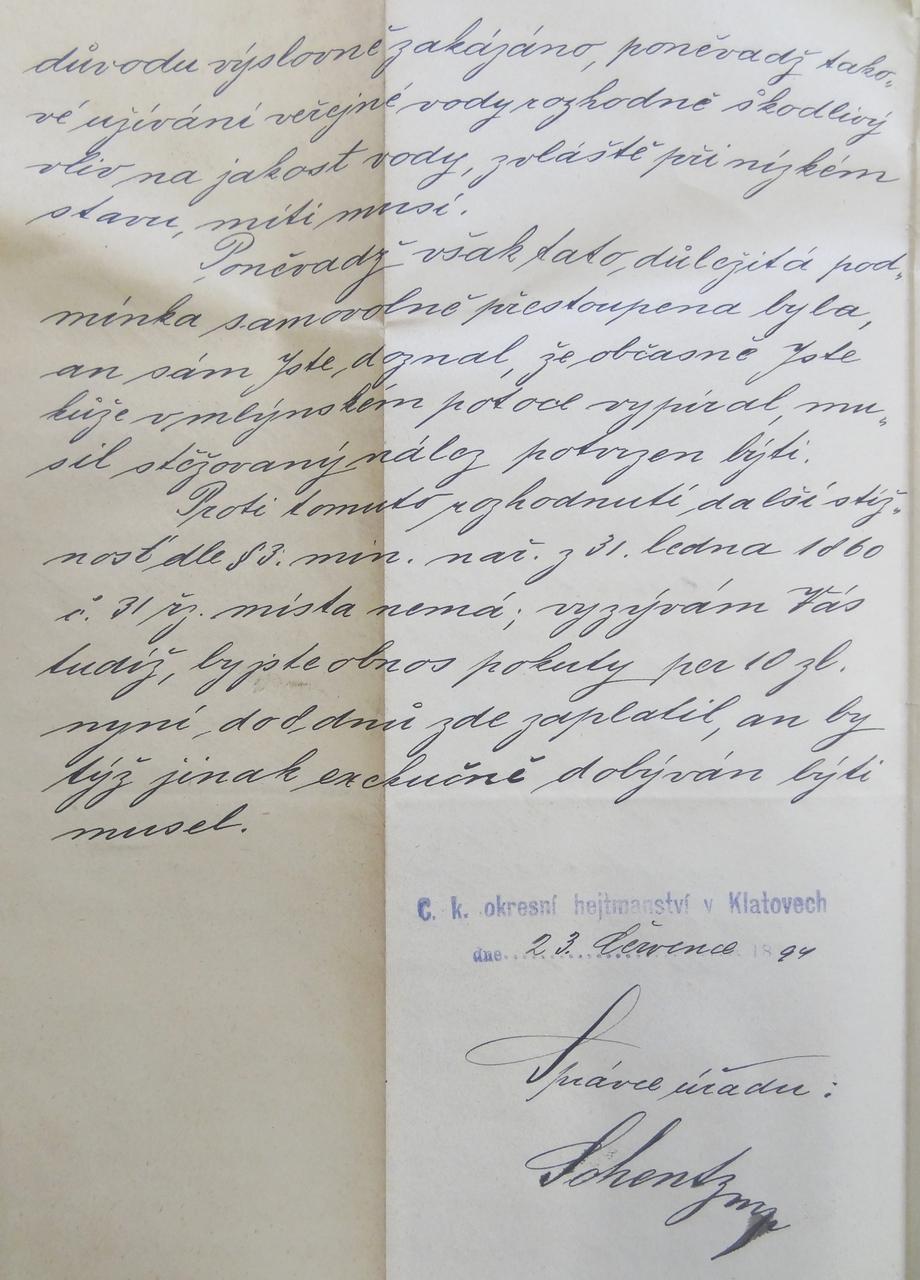 důvodu výslovně zakázáno, poněvadž tako„
vé užívání veřejné vody rozhodně škodlivý
vliv na jakost vody, zvláště při nízkém
stavu, míti musí.
Poněvadž však tato, důležitá pod„
mínka samovolně přestoupena byla,
an sám Jste, doznal, že občasně Jste
kůže v mlýnském potoce vypíral, mu„
sil stěžovaný nález potvrzen býti.
Proti tomuto rozhodnutí další stíž„
nosť dle § 3. min. nař. z 31. ledna 1860
č. 31 ř. z. místa nemá; vyzývám Vás
tudíž, by jste obnos pokuty per 10 zl.
nyní, do 8, dnů zde zaplatil, an by
týž jinak exekučně dobýván býti
musel.
C. k. okresní hejtmanství v Klatovech
dne 23. Července 1894
Správce úřadu: